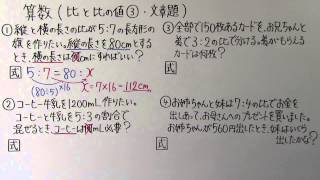 算数（比と比の値③・文章題）
①縦と横の長さの比が5:7の長方形の
旗を作りたい。縦の長さを80cmとする
とき、横の長さは何cm？
式 5:7=80:x
(80÷5) ×16
x=7×16=112cm
②コーヒー牛乳を1200mL作りたい。
コーヒーと牛乳を5:3の割合で
混ぜるとき、コーヒーは何mL必要？
式
③全部で150枚あるカードを、お兄ちゃんと
弟で3:2の比で分ける。弟がもらえる
カードは何枚？
式
④お姉ちゃんと妹は7:4の比でお金を
出しあって、お母さんへのプレゼントを買いました。
お姉ちゃんが560円出したとき、妹はいくら
出したかな？
式